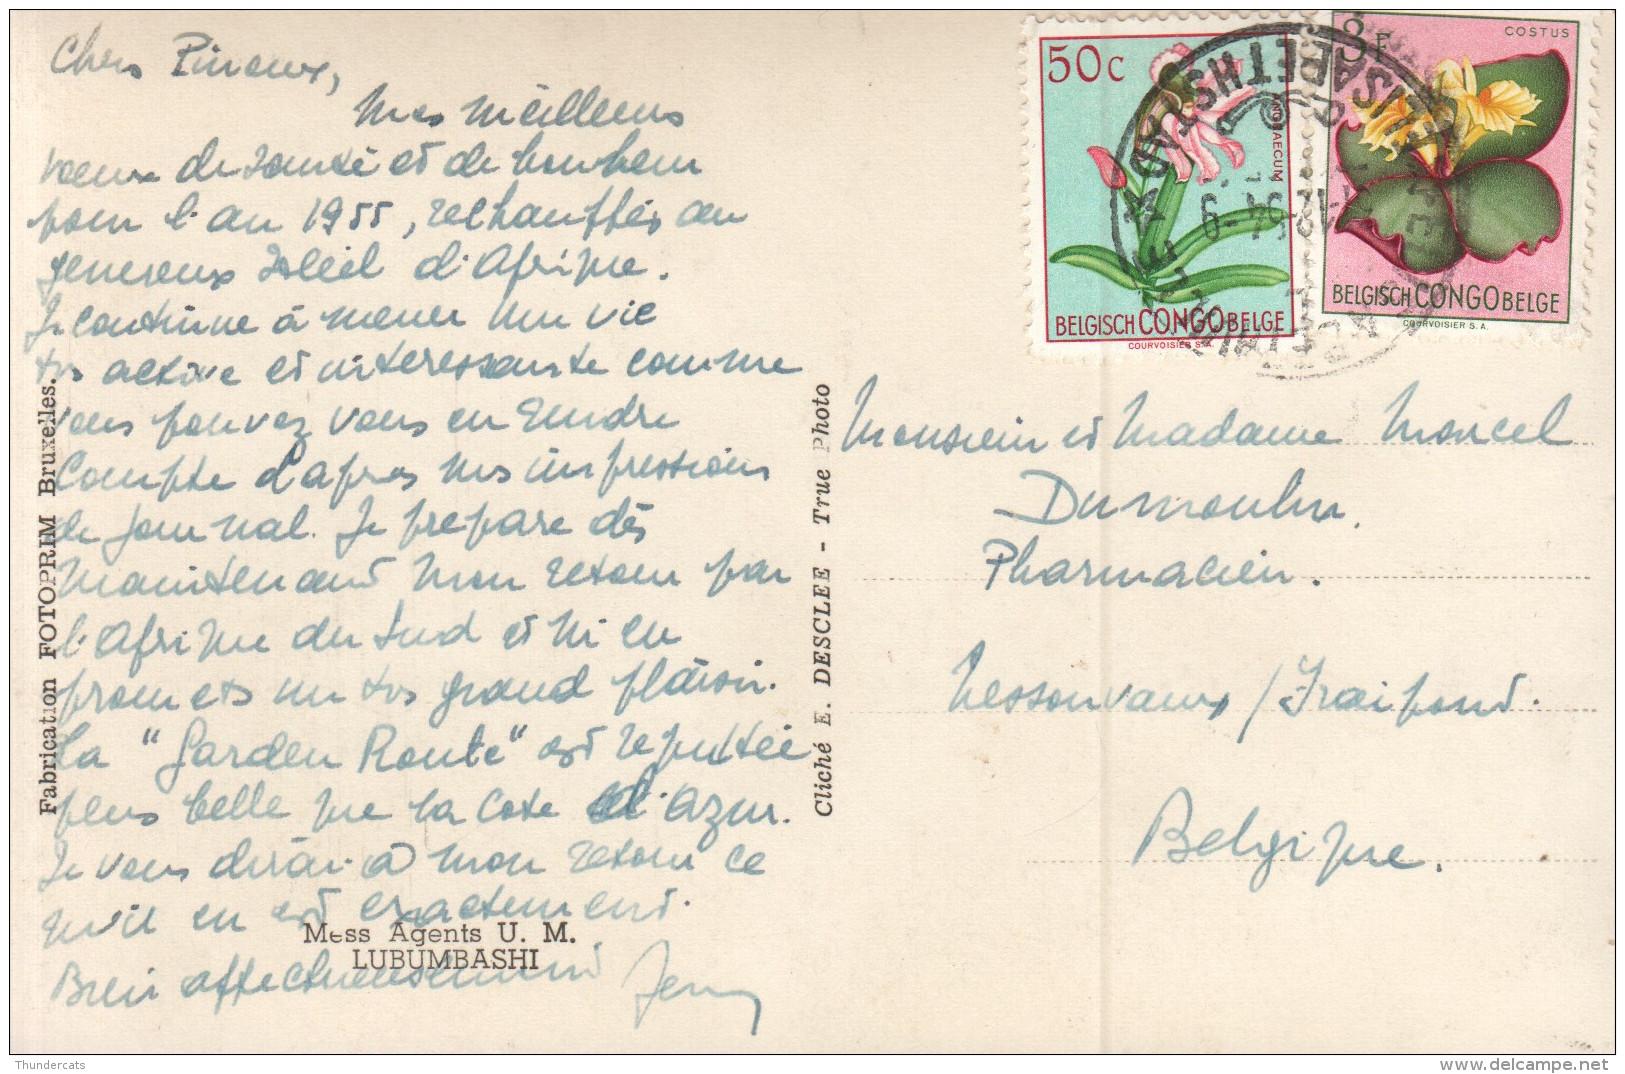 Chers Pinoux,
Mes meilleurs
voeux de santé et de bonheur
pour l'an 1955, réchauffés au
genereux soleil d'Afrique.
Je continue à mener une vie
très active et interessante comme
vous pouvez vous en rendre
compte d'apres mes impressions
de journal. Je prepare dès
maintenant mon retour par
l'Afrique du Sud et m'en
promets un très grand plaisir.
La "Garden Route" est reputée
plus belle que la Cote d'Azur.
Je vous dirai à mon retour ce
qu'il en est exactement.
Bien affectueusement
Mess Agents U. M.
LUBUMBASHI
Fabrication FOTOPRIM Bruxelles.
Cliché E. DESCLEE - True Photo
50c
ANGRAECUM
BELGISCH CONGO BELGE
COURVOISIER S.A.
3F
COSTUS
BELGISCH CONGO BELGE
COURVOISIER S.A.
ELISABETHSTAD
Monsieur et Madame Marcel
Dumoulin,
Pharmacien.
Nessonvaux / Fraipont.
Belgique.
Thundercats
delcampe.net